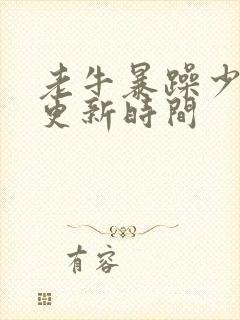 老牛暴躁少
更新時間
有容